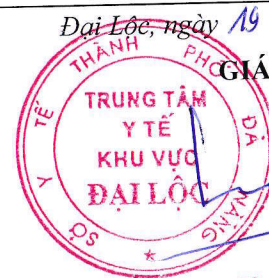 Đại Lộc, ngày 19
GIÁ
SỞ Y TẾ THÀNH PHỐ ĐÀ NẴNG
TRUNG TÂM
Y TẾ
KHU VỰC
ĐẠI LỘC